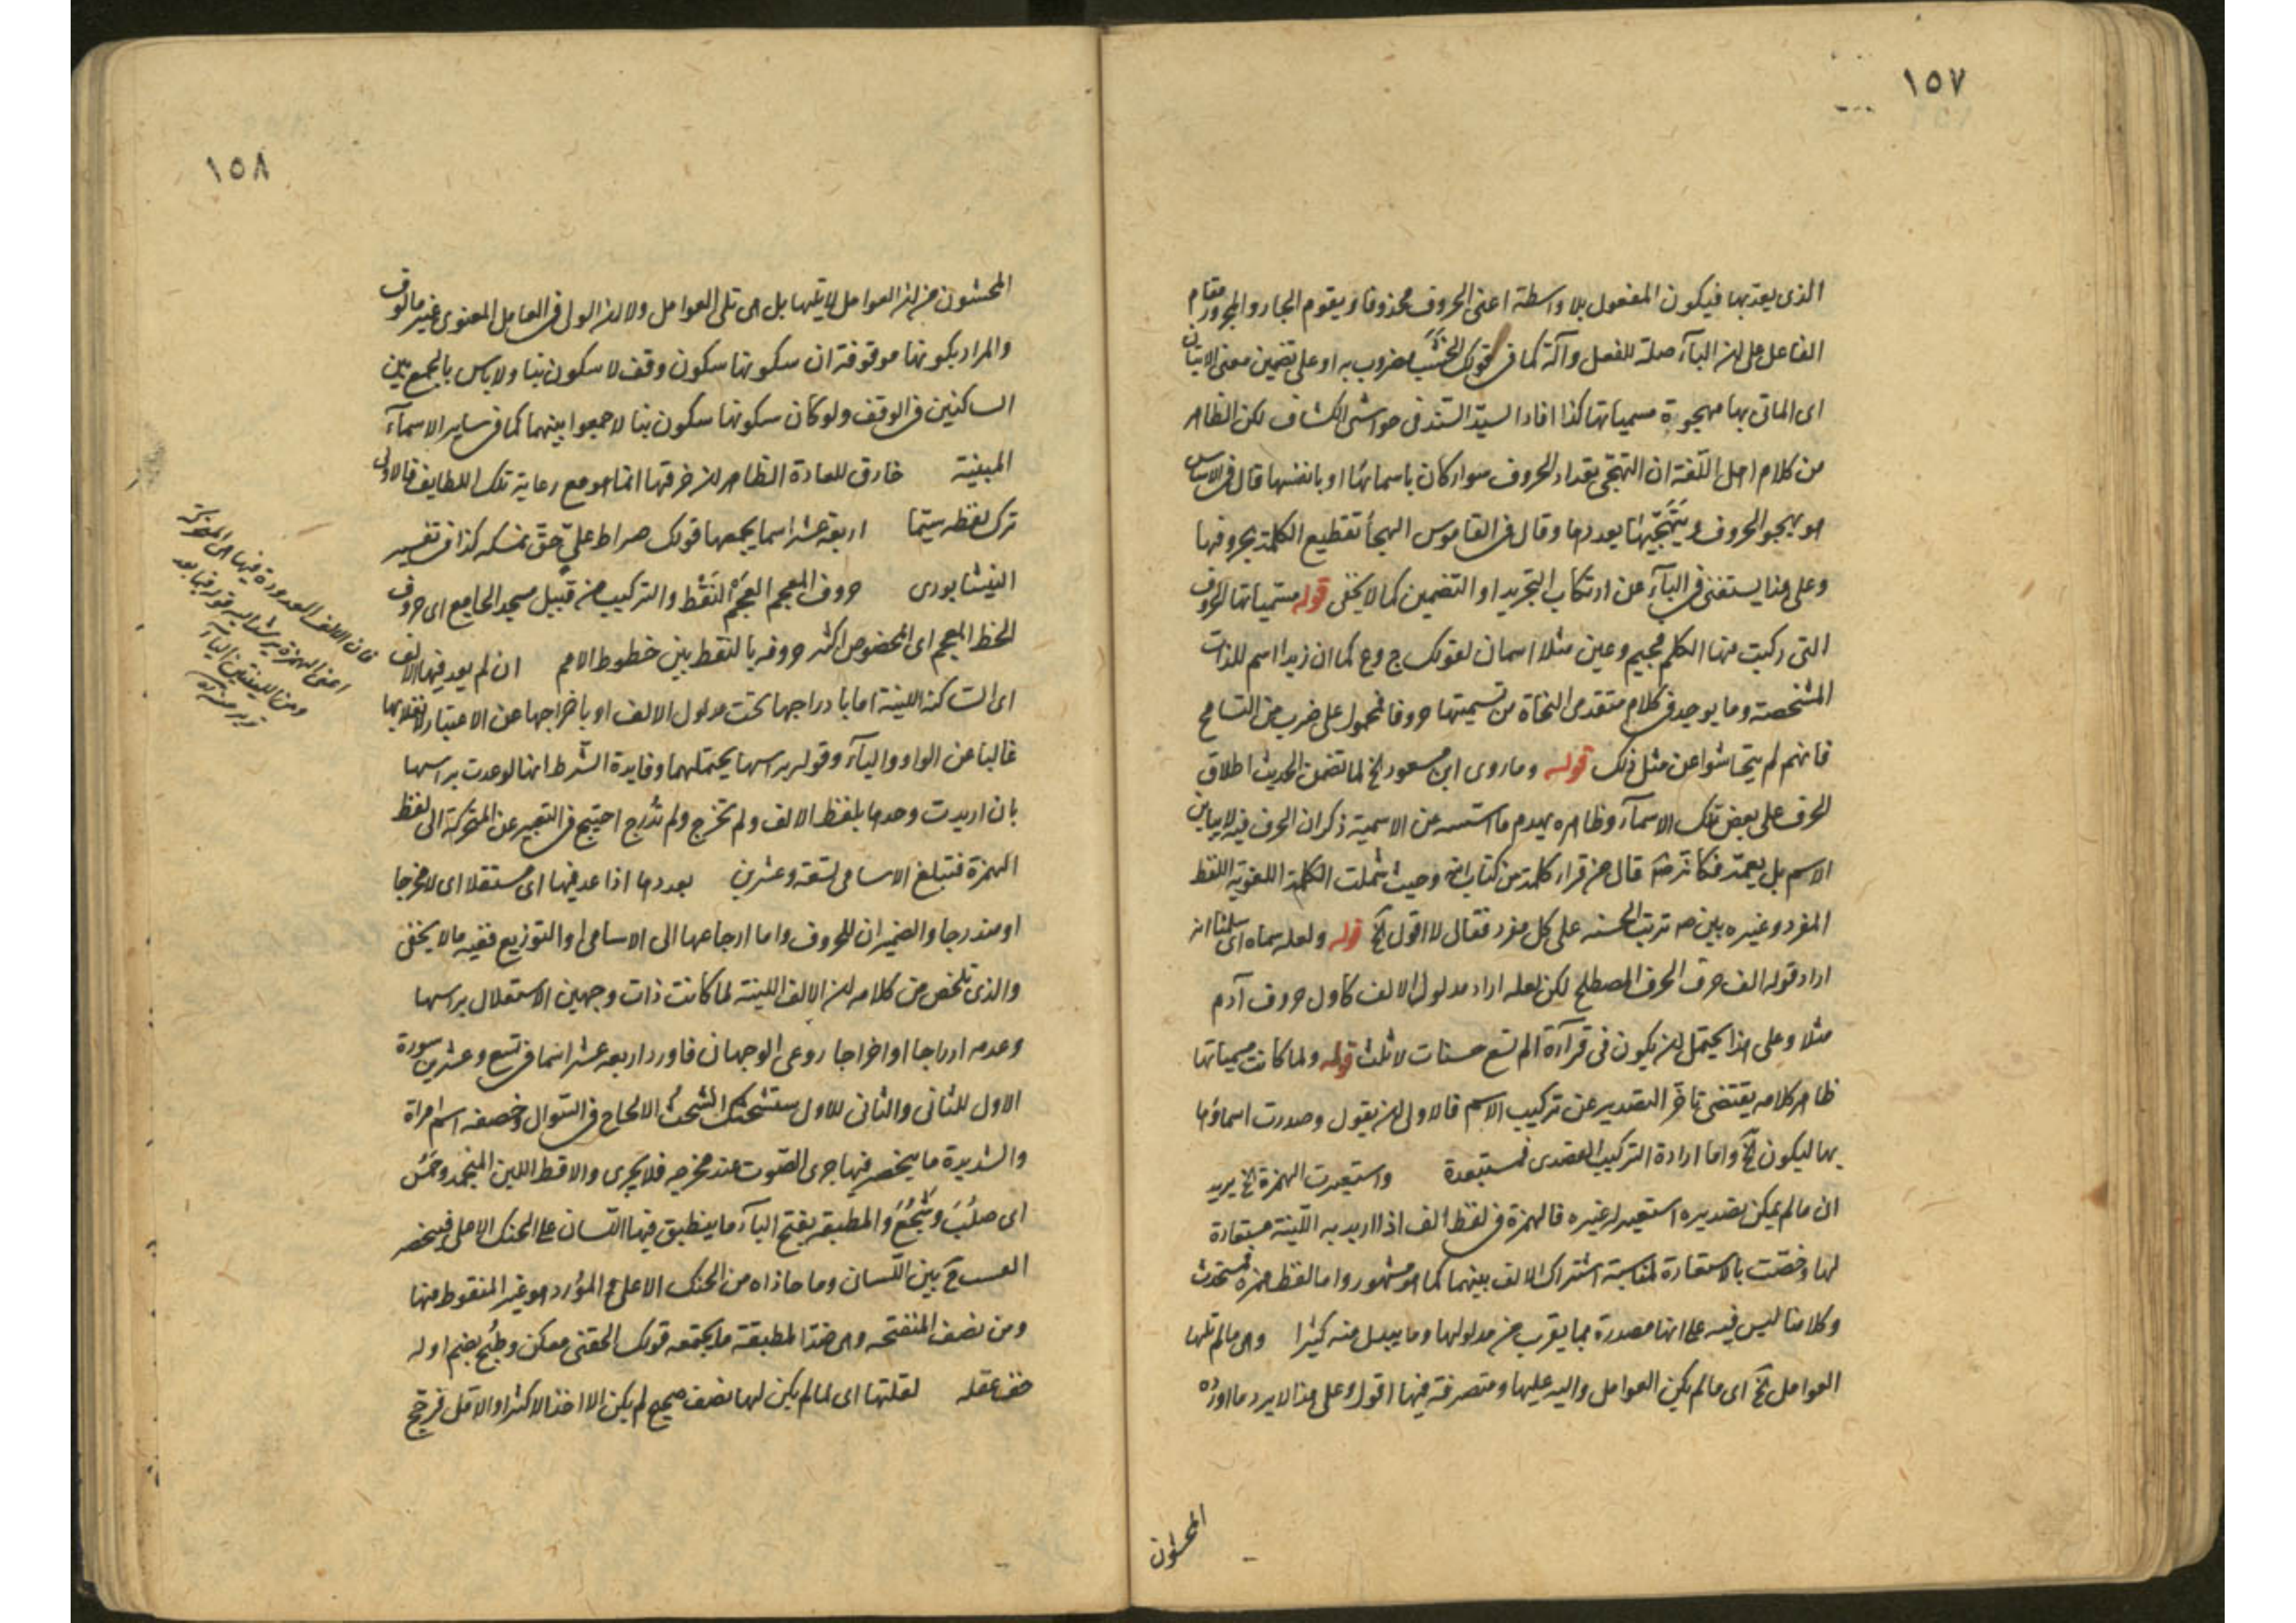 ١٥٧
الذى يعد بها فيكون المفعول بلا واسطة اعنى الحروف محذوفا ويقوم الجار والمجرور مقام
الفاعل على ان البآء صلة للفعل وآلة كما فى قولك الخشب مضروب به او على تضمين معنى الاتيان
اى الماتى بها مهجوة مسمياتها كذا افاد السيد السند فى حواشى الكشاف لكن الظاهر
من كلام اهل اللغة ان التهجى تعداد الحروف سواء كان باسمائها او بانفسها قال فى الاساس
هو يهجو الحروف ويتهجيها يعددها وقال فى القاموس الهجأ تقطيع الكلمة بحروفها
وعلى هذا يستغنى فى البآء عن ارتكاب التجريد او التضمين كما لا يخفى قوله مسمياتها الحروف
التى ركبت منها الكلم فجيم وعين مثلا اسمان لقولك ج وع كما ان زيدا اسم للذات
المشخصة وما يوجد فى كلام متقدمى النحاة من تسميتها حروفا فمحمول على ضرب من التسامح
فانهم لم يتحاشوا عن مثل ذلك قوله وما روى ابن مسعود الخ لما تضمن الحديث اطلاق
الحرف على بعض تلك الاسمآء وظاهره يهدم ما اسسه من الاسمية ذكر ان الحرف فيه لا يباين
الاسم بل يعمه فكانه قال من قرا كلمة من كتاب الله وحيث شملت الكلمة اللغوية اللفظ
المفرد وغيره بين ترتب الحسنه على كل مفرد فقال لا اقول الخ قوله ولعله سماه اى سلمنا انه
اراد بقوله الف حرف الحرف المصطلح لكن لعله اراد مدلول الالف كاول حروف آدم
مثلا وعلى هذا يحتمل ان يكون فى قرآءة الم تسع حسنات لا ثلث قوله ولما كانت مسمياتها
ظاهر كلامه يقتضى تاخر التصدير عن تركيب الاسم فالاولى ان يقول وصدرت اسماؤها
بها ليكون الخ واما ارادة التركيب القصدى فمستبعدة واستعيرت الهمزة الخ يريد
ان ما لم يمكن تصديره استعير له غيره فالهمزة فى لفظ الف اذا اريد به اللينة مستعارة
لها وخصت بالاستعارة لمناسبة اشتراك الالف بينهما كما هو مشهور واما لفظ همزة فمستحدث
وكلامنا ليس فيه على انها مصدرة بما يقرب من مدلولها وما يبدل منه كثيرا وهى ما لم تلها
العوامل الخ اى ما لم يكن العوامل واليه عليها ومتصرفة فيها اقول وعلى هذا لا يرد ما اورده
المحشون
١٥٨
المحشون من ان العوامل لا يليها بل هى تلى العوامل ولان الولى فى العامل المعنوى غير مالوف
والمراد بكونها موقوفة ان سكونها سكون وقف لا سكون بنا ولا باس بالجمع بين
الساكنين فى الوقف ولو كان سكونها سكون بنا لا جمعوا بينهما كما فى ساير الاسمآء
المبنية خارق للعادة الظاهر ان خرقها انما هو مع رعاية تلك اللطايف فالاولى
ترك لفظه سيتما اربعة عشر اسما يجمعها قولك صراط على حق نمسكه كذا فى تفسير
النيشابورى حروف المعجم العجم النقط والتركيب من قبيل مسجد الجامع اى حروف
الخط المعجم اى المخصوص اكثر حروفه بالنقط بين خطوط الامم ان لم يعد فيها الالف
اى الساكنة اللينة اما بادراجها تحت مدلول الالف او باخراجها عن الاعتبار لانقلابها
غالبا عن الواو واليآء وقوله براسها يحتملهما وفايدة الشرط انها لو عدت براسها
بان اريدت وحدها بلفظ الالف ولم تخرج ولم تدرج احتيج فى التعبير عن المتحركة الى لفظ
الهمزة فتبلغ الاسامى تسعة وعشرين بعددها اذا عد فيها اى مستقلا اى لا مخرجا
او مندرجا والضميران للحروف واما ارجاعها الى الاسامى او التوزيع ففيه ما لا يخفى
والذى تلخص من كلامه ان الالف اللينة لما كانت ذات وجهين الاستقلال براسها
وعدمه ادراجا او اخراجا روعى الوجهان فاورد اربعة عشر اسما فى تسع وعشرين سورة
الاول للثانى والثانى للاول ستشحثك الشحث الالحاح فى السوال وخصفه اسم امراة
والشديدة ما ينحصر فيها جرى الصوت عند مخرجه فلا يجرى والاقط اللبن المنجمد وحمس
اى صلب وشجع والمطبقه بفتح البآء ما ينطبق فيها اللسان على الحنك الاعلى فينحصر
الصوت بين اللسان وما حاذاه من الحنك الاعلى المورد هو غير المنقوط منها
ومن نصف المنفتحه وهى ضد المطبقة ما يجمعه قولك الحقنى معكن وطبخ بضم اوله
لقلتها اى لما لم يكن لها نصف صحيح لم يكن الا اخذ الاكثر او الاقل فرجح
فان الالف المعدودة فيها هى المتحركة
اعنى الهمزة